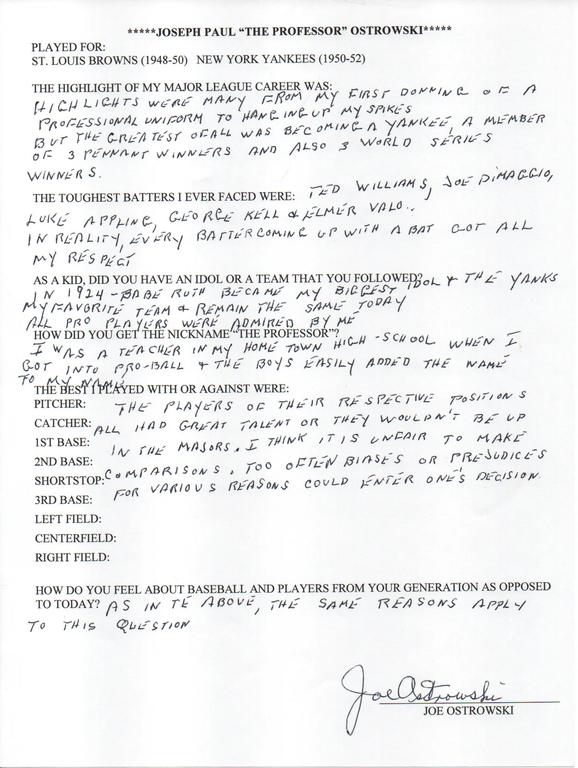 *****JOSEPH PAUL "THE PROFESSOR" OSTROWSKI*****
PLAYED FOR:
ST. LOUIS BROWNS (1948-50) NEW YORK YANKEES (1950-52)
THE HIGHLIGHT OF MY MAJOR LEAGUE CAREER WAS:
HIGHLIGHTS WERE MANY FROM MY FIRST DONNING OF A
PROFESSIONAL UNIFORM TO HANGING UP MY SPIKES
BUT THE GREATEST OF ALL WAS BECOMING A YANKEE, A MEMBER
OF 3 PENNANT WINNERS AND ALSO 3 WORLD SERIES
WINNERS.
THE TOUGHEST BATTERS I EVER FACED WERE: TED WILLIAMS, JOE DIMAGGIO,
LUKE APPLING, GEORGE KELL & ELMER VALO..
IN REALITY, EVERY BATTER COMING UP WITH A BAT GOT ALL
MY RESPECT
AS A KID, DID YOU HAVE AN IDOL OR A TEAM THAT YOU FOLLOWED?
IN 1924-BABE RUTH BECAME MY BIGGEST IDOL & THE YANKS
MY FAVORITE TEAM & REMAIN THE SAME TODAY
ALL PRO PLAYERS WERE ADMIRED BY ME
HOW DID YOU GET THE NICKNAME "THE PROFESSOR"?
I WAS A TEACHER IN MY HOME TOWN HIGH-SCHOOL WHEN I
GOT INTO PRO-BALL & THE BOYS EASILY ADDED THE NAME
TO MY NAME
THE BEST I PLAYED WITH OR AGAINST WERE:
PITCHER: THE PLAYERS OF THEIR RESPECTIVE POSITIONS
CATCHER: ALL HAD GREAT TALENT OR THEY WOULDN'T BE UP
1ST BASE: IN THE MAJORS. I THINK IT IS UNFAIR TO MAKE
2ND BASE:
SHORTSTOP: COMPARISONS. TOO OFTEN BIASES OR PREJUDICES
3RD BASE: FOR VARIOUS REASONS COULD ENTER ONE'S DECISION
LEFT FIELD:
CENTERFIELD:
RIGHT FIELD:
HOW DO YOU FEEL ABOUT BASEBALL AND PLAYERS FROM YOUR GENERATION AS OPPOSED
TO TODAY? AS IN TE ABOVE, THE SAME REASONS APPLY
TO THIS QUESTION
Joe Ostrowski
JOE OSTROWSKI